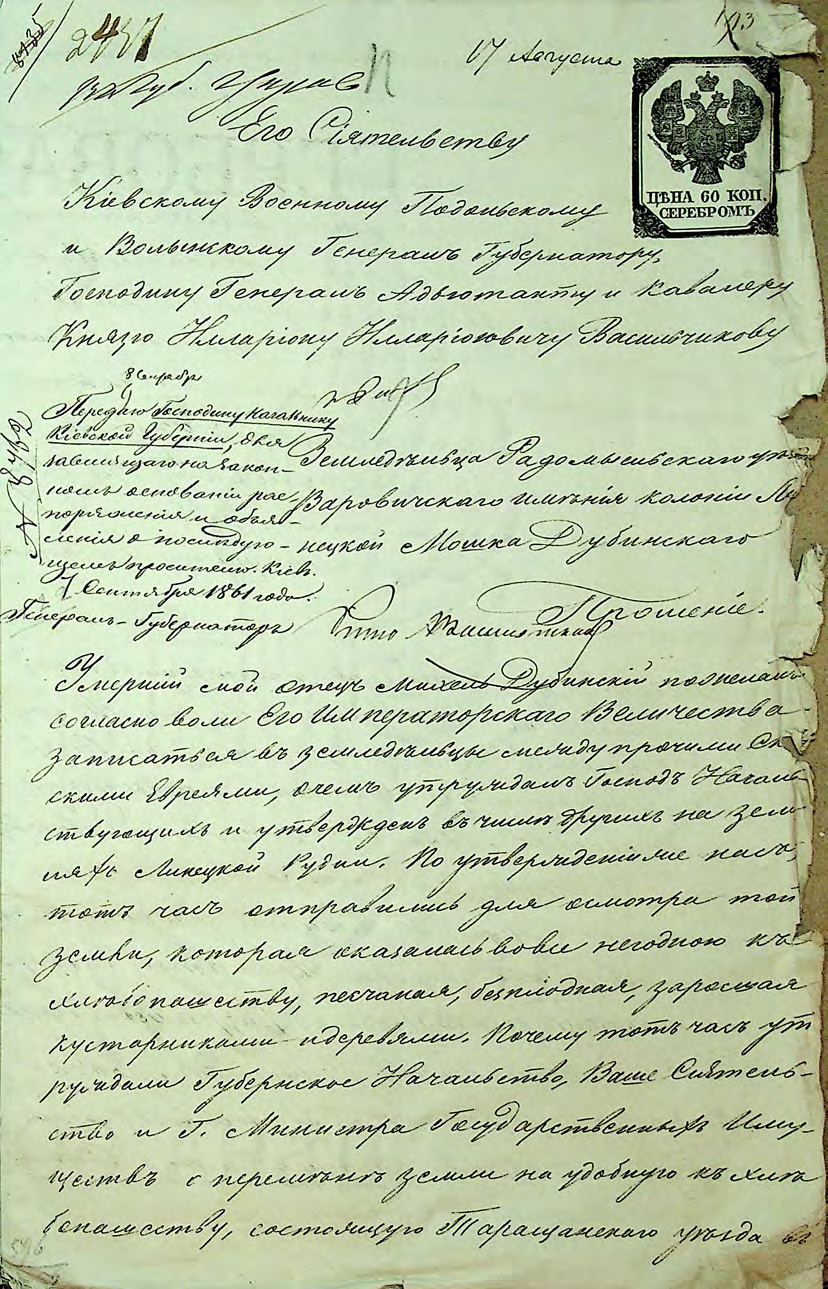 2437
193
17 Августа
ЦѢНА 60 КОП.
СЕРЕБРОМЪ
Его Сіятельству
Кіевскому Военному Подольскому
и Волынскому Генералъ Губернатору,
Господину Генералъ Адьютанту и Кавалеру
Князю Иллариону Илларіоновичу Васильчикову
Передаю Господину Начальнику
Кіевской Губерніи, для
зависящаго на закон-
номъ основаніи рас-
поряженія и объяв-
ленія о послѣдую-
щемъ просителю. Кіев.
7 Сентября 1861 года.
Генералъ-Губернаторъ
№ 8492
Земледѣльца Радомысльскаго уѣзда
Варовичскаго имѣнія колоніи Ли
нецкой Мошка Дубинскаго
Прошеніе.
Умершій мой отецъ Михель Дубинскій пожелалъ
согласно воли Его Императорскаго Величества
записаться въ земледѣльцы между прочими Ск
скими Евреями, очемъ утруждалъ Господъ Началь
ствующихъ и утвержденъ въ числѣ другихъ на зем
ляхъ Линецкой Рудни. По утвержденіи же насъ,
тотъ часъ отправились для осмотра той
земли, которая оказалась вовсе негодною къ
хлѣбопашеству, песчаная, безплодная, заросшая
кустарниками и деревями. Почему тотъ часъ ут
руждали Губернское Начальство, Ваше Сіятель-
ство и Г. Министра Государственныхъ Иму-
ществъ о перемѣнѣ земли на удобную къ хлѣ
бопашеству, состоящую Таращанскаго уѣзда въ